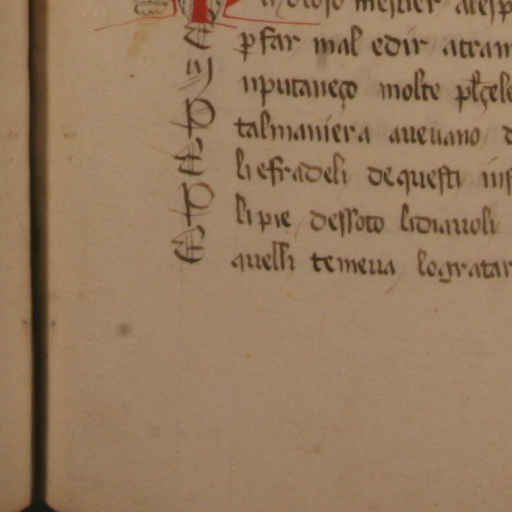 mestier
ꝑ far mal edir atram
uputaneço molte
talmaniera aueuano d
li efradeli dequesti inf
li pie dessoto lidiauoli
quelli temeua logratar